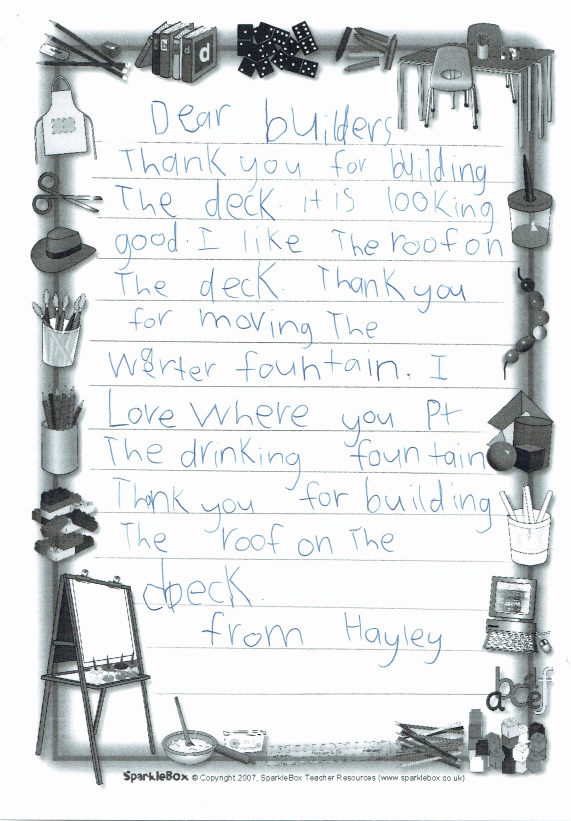 Dear builders
Thank you for building
The deck. it is looking
good. I like The roof on
The deck. Thank you
for moving The
Werter fountain. I
Love Where you Pt
The drinking fountain
Thank you for building
The roof on The
deck.
from Hayley
SparkleBox © Copyright 2007, SparkleBox Teacher Resources (www.sparklebox.co.uk)